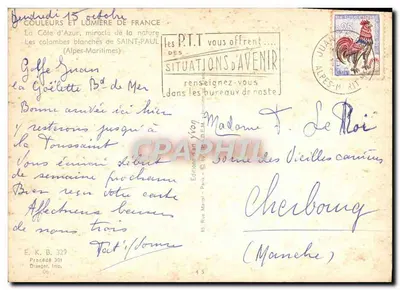 Vendredi 15 octobre
COULEURS ET LUMIÈRE DE FRANCE
La Côte d'Azur, miracle de la nature
Les colombes blanches de SAINT-PAUL
(Alpes-Maritimes)
Golfe Juan
la Goëlette Bd de Mer
Bonne arrivée ici hier
restons jusqu'à
la Toussaint
Vous écrirai début
de semaine prochaine
Bien reçu votre carte
Affectueux baisers
de nous trois
E. K. B. 327
Procédé 301
Draeger, Imp.
les P.T.T vous offrent...
DES
SITUATIONS D'AVENIR
renseignez-vous
dans les bureaux de poste
JUAN
ALPES-M
Editions d'art Yvon
CPAPHIL.COM
Madame F. Le Roi
rue des Vieilles carrières
Cherbourg
(Manche)